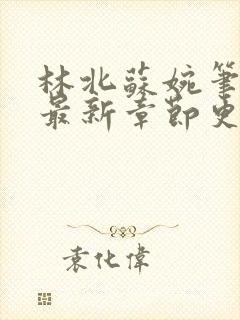 林北蘇婉筆
最新章節史
袁化偉